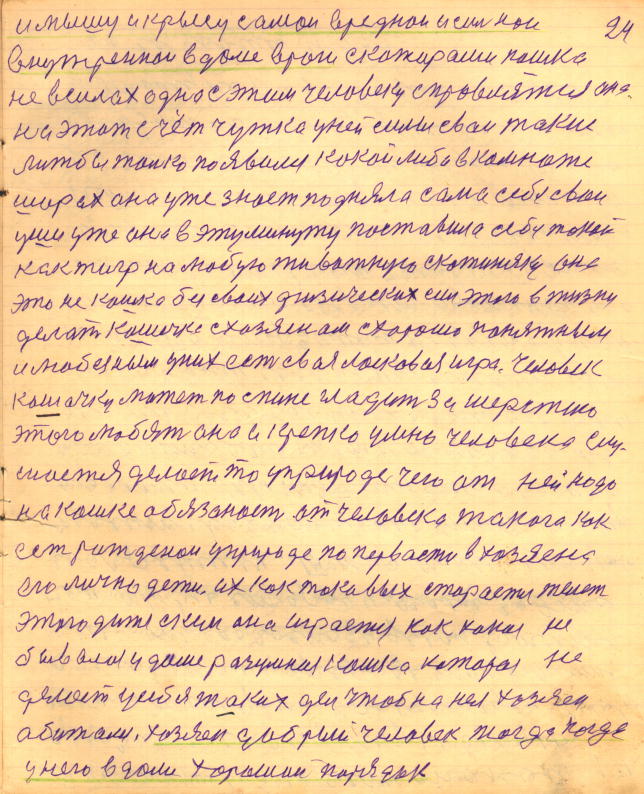 и мышу и крысу самой вредной и сил ной 24
внутреннои в доме враги с кожирами кошка
не в силах одно с этим человеку справлятся она.
на этот счёт чутка у ней силы сваи такие
лит бы толко появился какой либо в комноте
шорах она уже знает подняла сама себу сваи
уши уже она в эту минуту поставила себу токой
как тигр на любую животную скотиняку она
это не кошка без сваих физических сил этого в жизни
делат кошачке с хозяеном с хорошо понятным
и любезным у них ест свая ласковая игра. Человек
кошачку может по спине гладит за шерстю
этого любят она и крепко умно человека слу-
шается делает то у природе чего от ней надо
на кошке абязаност от человека такога как
ест рожденои у природе по первасти в хозяена
его лично дети. их как токавых стараетя
этого дитя с ким она играетя как какая не
бывалая и даже разумная кошка каторая не
делает у себя таких дел чтоб на нея хозяен
абижали. хозяен добрый человек тогда когда
у него в доми хорошаи порядак